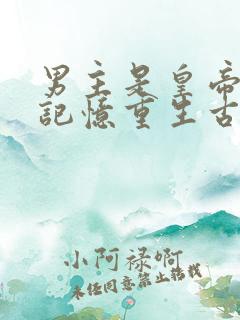 男主是皇帝
記憶重生古
小阿禄啊
未经同意禁止转载